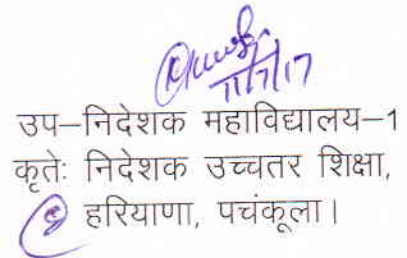 11/7/17
उप–निदेशक महाविद्यालय–1
कृतेः निदेशक उच्चतर शिक्षा,
हरियाणा, पचंकूला।